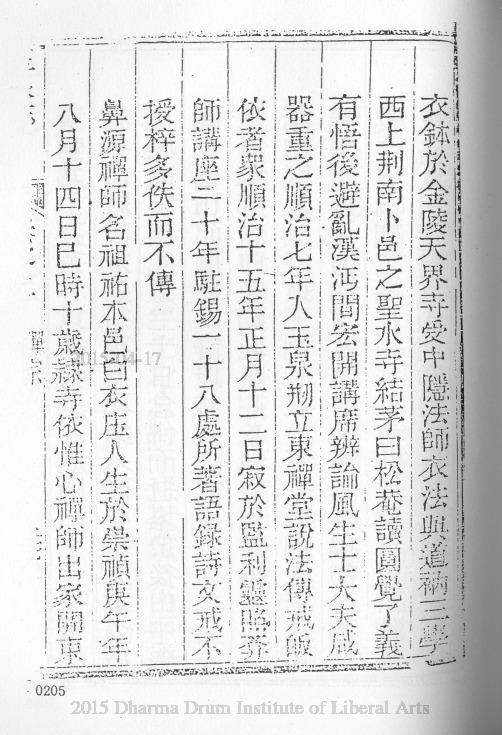 衣鉢於金陵天界寺受中隱法師衣法與道衲三學
西上荆南卜邑之聖水寺結茅曰松菴讀圓覺了義
有悟後避亂漢沔間宏開講席辨論風生士大夫咸
器重之順治七年入玉泉剏立東禪堂說法傳戒皈
依者衆順治十五年正月十二日寂於監利靈照莽
師講座二十年駐錫一十八處所著語錄詩文戒不
授梓多佚而不傳
鼻源禪師名祖祐本邑白衣庄人生於崇禎庚午年
八月十四日巳時十歲禮寺依惟心禪師出家關東
2015-04-17
0205
2015 Dharma Drum Institute of Liberal Arts